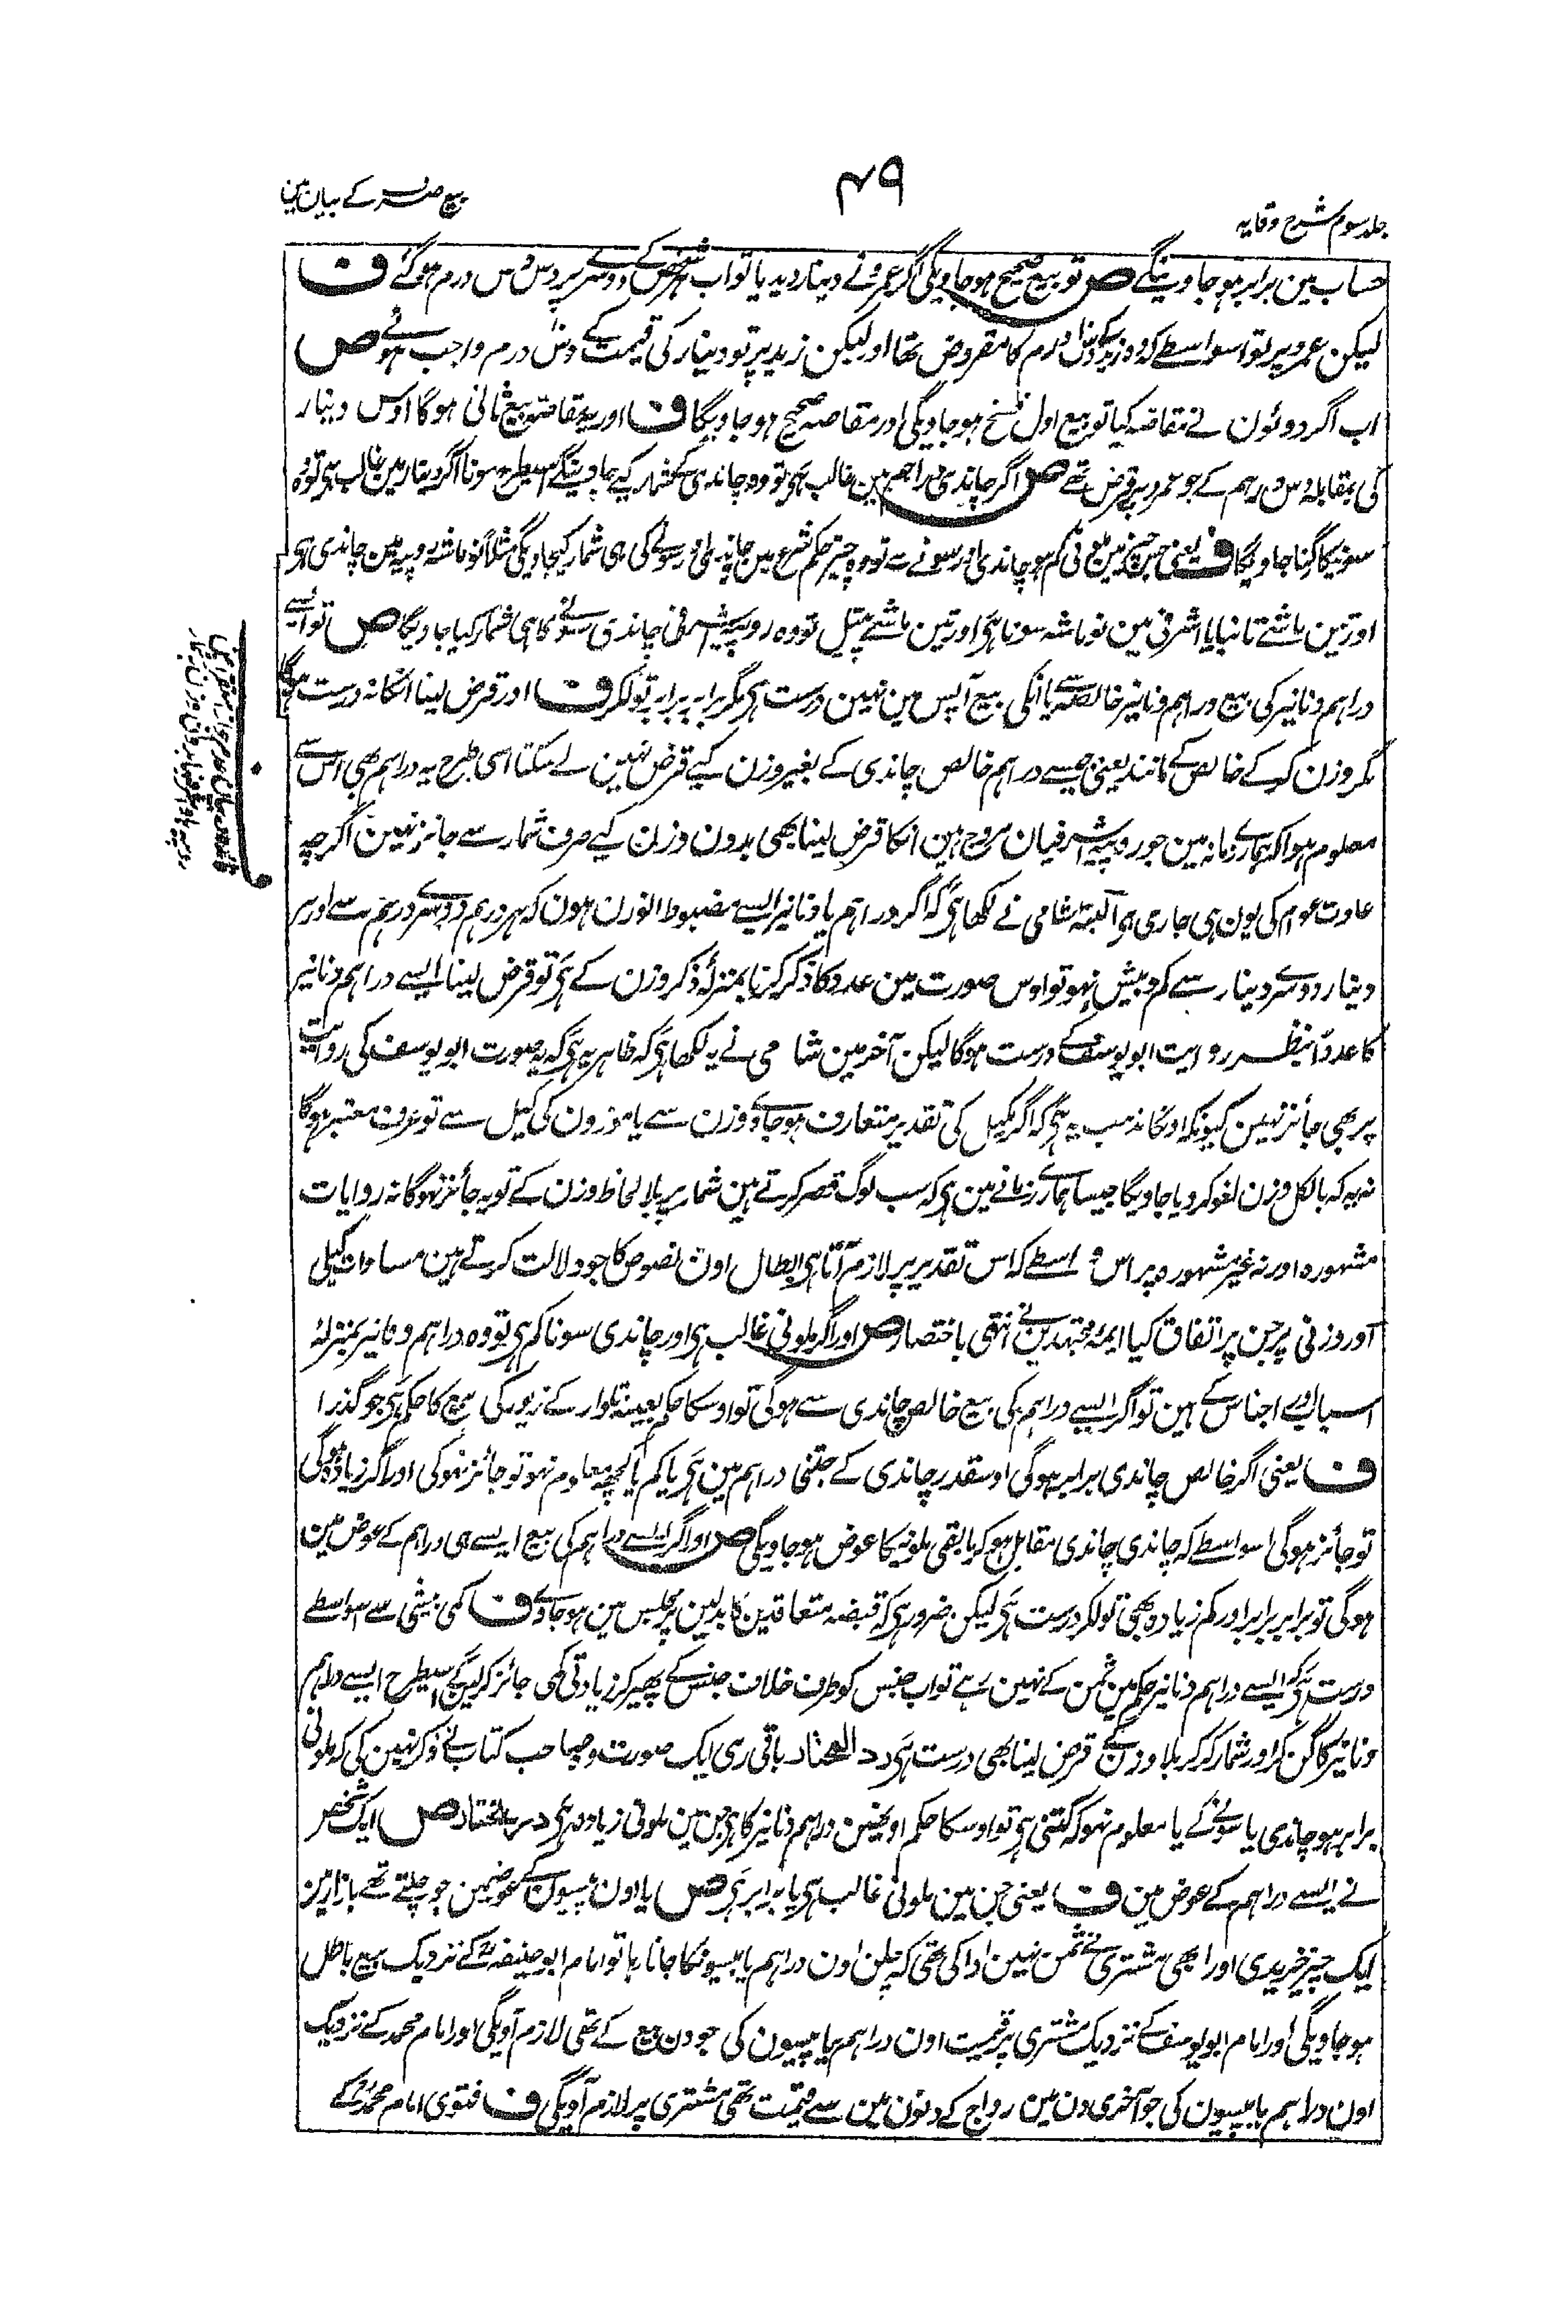 جلد سوم شرح وقایہ
۴۹
بیع صرف کے بیان مین
حساب مین برابر ہو جاوینگے ص تو بیع صحیح ہو جاویگی اگر عمرو نے دینار دیدیا تو اب ہر شخص کے دوسرے پر دس دس درم ہو گئے ف
لیکن عمرو پر تو اسواسطے کہ وہ زید کے دس درم کا مقروض تھا اور لیکن زید پر تو دینار کی قیمت کے دس درم واجب ہوئے ص
اب اگر دونون نے مقاصہ کیا تو بیع اول فسخ ہو جاویگی اور مقاصہ صحیح ہو جاویگا ف اور یہ مقاصہ بیع ثانی ہوگا اوس دینار
کی بمقابلہ دس درہم کے جو عمرو پر قرض تھے ص اگر چاندی دراہم مین غالب ہی تو وہ چاندی کے شمار کیے جاوینگے اسیطرح سونا اگر دینار مین غالب ہی تو وہ
سونیکا گنا جاویگا ف یعنی جس چیز مین ملونی کم ہو چاندی اور سونے سے تو وہ چیز حکم شرع مین چاندی اور سونے کی ہی شمار کیجاویگی مثلاً نو ماشہ روپیہ مین چاندی ہی
اور تین ماشے تانبا یا اشرفی مین نو ماشہ سونا ہی اور تین ماشے پیتل تو وہ روپیہ اشرفی چاندی سونے کا ہی شمار کیا جاویگا ص تو ایسے
دراہم دنانیر کی بیع دراہم دنانیر خالصہ سے یا انکی بیع آپس مین نہین درست ہی مگر برابر برابر تولکر ف اور قرض لینا انکا نہ درست ہوگا
مگر وزن کرکے خالص کے مانند یعنی جیسے دراہم خالص چاندی کے بغیر وزن کیے قرض نہین لے سکتا اسی طرح یہ دراہم بھی اس سے
معلوم ہوا کہ ہمارے زمانہ مین جو روپیہ اشرفیان مروج ہین انکا قرض لینا بھی بدون وزن کیے صرف شمار سے جائز نہین اگرچہ
عادت عوام کی یون ہی جاری ہی البتہ شامی نے لکھا ہی کہ اگر دراہم یا دنانیر ایسے مضبوط الوزن ہون کہ ہر درہم دوسرے درہم سے اور ہر
دینار دوسرے دینار سے کم و بیش نہو تو اوس صورت مین عدد کا ذکر کرنا بمنزلۂ ذکر وزن کے ہی تو قرض لینا ایسے دراہم دنانیر
کا عدداً بنظر روایت ابو یوسف کے درست ہوگا لیکن آخر مین شامی نے یہ لکھا ہی کہ ظاہر یہ ہی کہ یہ صورت ابو یوسف کی روایت
پر بھی جائز نہین کیونکہ اونکا مذہب یہ ہی کہ اگر مکیل کی تقدیر متعارف ہو جاوے وزن سے یا موزون کی کیل سے تو عرف معتبر ہوگا
نہ یہ کہ بالکل وزن لغو کر دیا جاویگا جیسا ہمارے زمانے مین ہی کہ سب لوگ قصر کرتے ہین شمار پر بلا لحاظ وزن کے تو یہ جائز نہوگا نہ روایات
مشہورہ اور نہ غیر مشہورہ پر اس واسطے کہ اس تقدیر پر لازم آتا ہی ابطال اون نصوص کا جو دلالت کرتے ہین مساوات کیلی
اور وزنی پر جن پر اتفاق کیا ایمۂ مجتہدین نے انتہی باختصار ص اور اگر ملونی غالب ہی اور چاندی سونا کم ہی تو وہ دراہم و دنانیر بمنزلۂ
اسباب اور اجناس کے ہین تو اگر ایسے دراہم کی بیع خالص چاندی سے ہوگی تو اوسکا حکم بعینہ تلوار کے زیور کی بیع کا حکم ہی جو گذرا
ف یعنی اگر خالص چاندی برابر ہوگی اوسقدر چاندی کے جتنی دراہم مین ہی یا کم یا کچھ معلوم نہو تو جائز نہوگی اور اگر زیادہ ہوگی
تو جائز ہوگی اسواسطے کہ چاندی چاندی مقابل ہو کر باقی ملونیکا عوض ہو جاویگی ص اور اگر ایسے دراہم کی بیع ایسے ہی دراہم کے عوض مین
ہوگی تو برابر برابر اور کم زیادہ بھی تولکر درست ہی لیکن ضرور ہی کہ قبضہ متعاقدین کا بدلین پر مجلس مین ہو جاوے ف کمی بیشی سے اسواسطے
درست ہی کہ ایسے دراہم دنانیر حکم مین ثمن کے نہین رہے تو اب جنس کو طرف خلاف جنس کے پھیر کر زیادتی کمی جائز کر لینگے اسیطرح ایسے دراہم
دنانیر کا گن کر اور شمار کرکر بلا وزن کے قرض لینا بھی درست ہی رد المحتار باقی رہی ایک صورت وہ صاحب کتاب نے ذکر نہین کی کہ ملونی
برابر ہو چاندی یا سونے کے یا معلوم نہو کہ کتنی ہی تو اوسکا حکم اونھین دراہم دنانیر کا ہی جن مین ملونی زیادہ ہی در المختار ص ایک شخص
نے ایسے دراہم کے عوض مین ف یعنی جن مین ملونی غالب ہی یا برابر ہی ص یا اون پیسون کے عوضمین جو چلتے تھے بازار مین
ایک چیز خریدی اور ابھی مشتری نے ثمن نہین ادا کی تھی کہ چلن اون دراہم یا پیسونکا جاتا رہا تو امام ابو حنیفہ رح کے نزدیک بیع باطل
ہو جاویگی اور امام ابو یوسف کے نزدیک مشتری پر قیمت اون دراہم یا پیسون کی جو دن بیع کے تھی لازم آویگی اور امام محمد کے نزدیک
اون دراہم یا پیسون کی جو آخری دن مین رواج کے دنون مین سے قیمت تھی مشتری پر لازم آویگی ف فتوی امام محمد رح کے